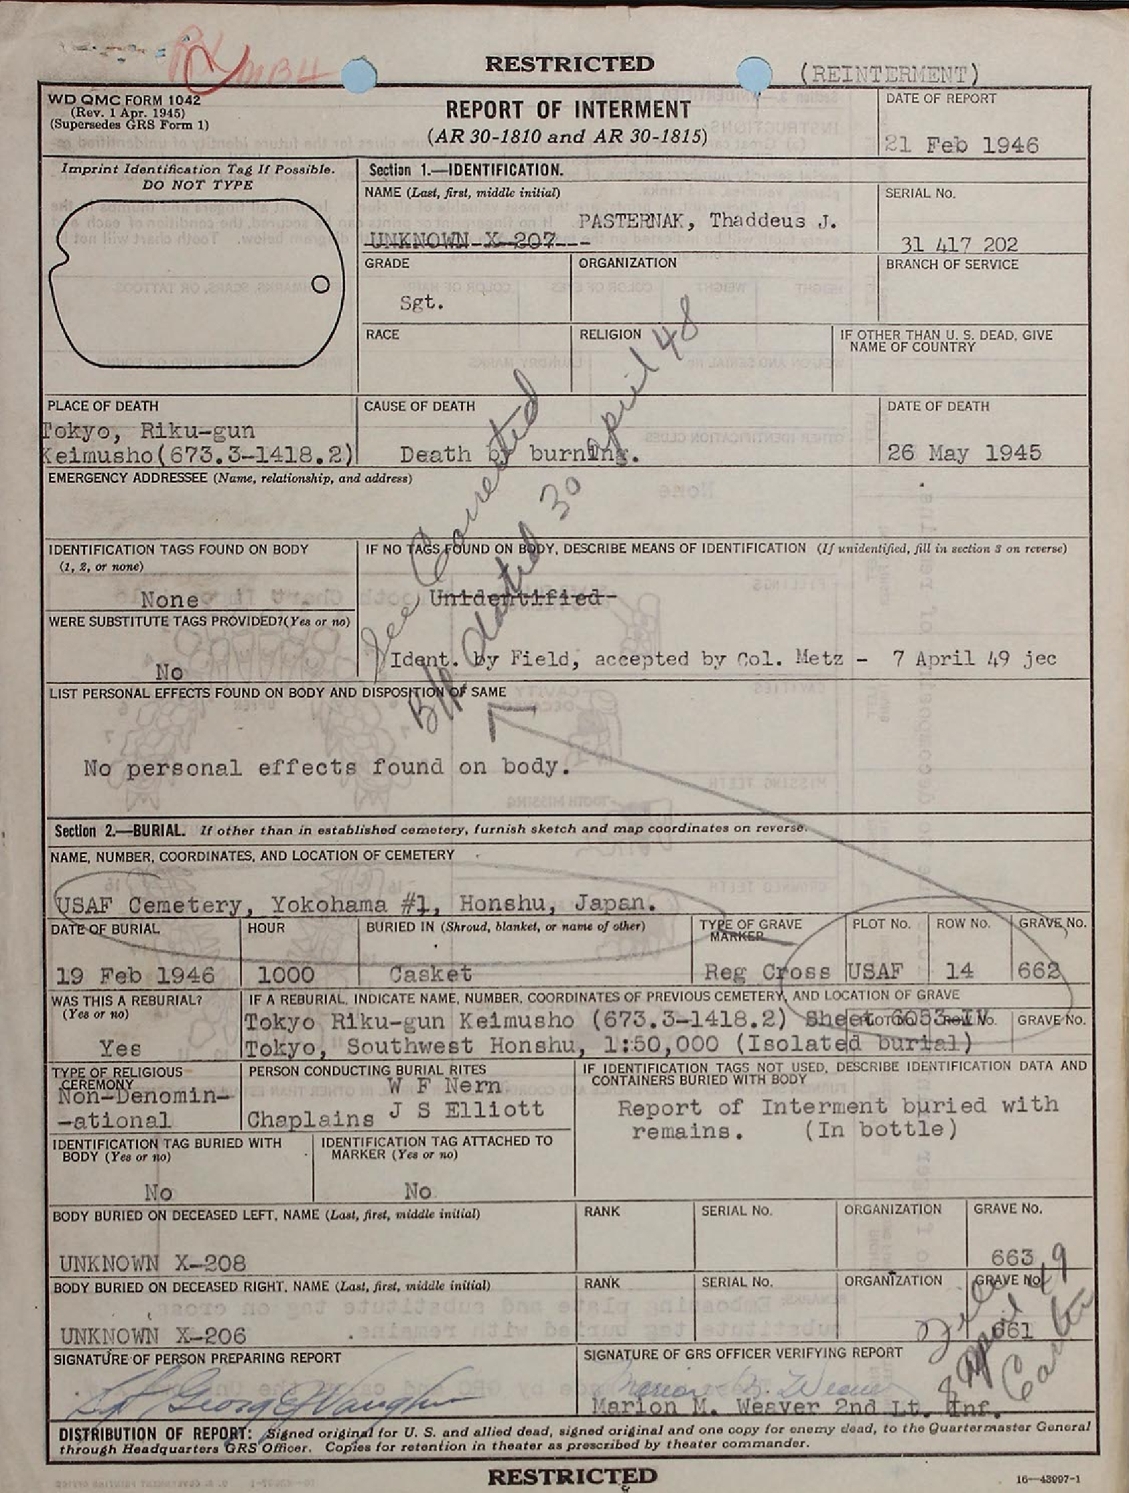 RESTRICTED
(REINTERMENT)
WD QMC FORM 1042
(Rev. 1 Apr. 1945)
(Supersedes GRS Form 1)
REPORT OF INTERMENT
(AR 30-1810 and AR 30-1815)
DATE OF REPORT
21 Feb 1946
Imprint Identification Tag If Possible.
DO NOT TYPE
Section 1.—IDENTIFICATION.
NAME (Last, first, middle initial)
PASTERNAK, Thaddeus J.
UNKNOWN X-207
SERIAL No.
31 417 202
GRADE
Sgt.
ORGANIZATION
BRANCH OF SERVICE
RACE
RELIGION
IF OTHER THAN U. S. DEAD, GIVE
NAME OF COUNTRY
PLACE OF DEATH
Tokyo, Riku-gun
Keimusho(673.3-1418.2)
CAUSE OF DEATH
Death by burning.
DATE OF DEATH
26 May 1945
See Corrected
B/R dated 30 April 48
EMERGENCY ADDRESSEE (Name, relationship, and address)
IDENTIFICATION TAGS FOUND ON BODY
(1, 2, or none)
None
IF NO TAGS FOUND ON BODY, DESCRIBE MEANS OF IDENTIFICATION (If unidentified, fill in section 3 on reverse)
Unidentified
WERE SUBSTITUTE TAGS PROVIDED?(Yes or no)
No
Ident. by Field, accepted by Col. Metz - 7 April 49 jec
LIST PERSONAL EFFECTS FOUND ON BODY AND DISPOSITION OF SAME
No personal effects found on body.
Section 2.—BURIAL. If other than in established cemetery, furnish sketch and map coordinates on reverse.
NAME, NUMBER, COORDINATES, AND LOCATION OF CEMETERY
USAF Cemetery, Yokohama #1, Honshu, Japan.
DATE OF BURIAL
19 Feb 1946
HOUR
1000
BURIED IN (Shroud, blanket, or name of other)
Casket
TYPE OF GRAVE
MARKER
Reg Cross
PLOT No.
USAF
ROW No.
14
GRAVE No.
662
WAS THIS A REBURIAL?
(Yes or no)
Yes
IF A REBURIAL, INDICATE NAME, NUMBER, COORDINATES OF PREVIOUS CEMETERY, AND LOCATION OF GRAVE
Tokyo Riku-gun Keimusho (673.3-1418.2) Sheet 6053-IV
PLOT No. ROW No. GRAVE No.
Tokyo, Southwest Honshu, 1:50,000 (Isolated burial)
TYPE OF RELIGIOUS
CEREMONY
Non-Denomin-
-ational
PERSON CONDUCTING BURIAL RITES
W F Nern
Chaplains J S Elliott
IF IDENTIFICATION TAGS NOT USED, DESCRIBE IDENTIFICATION DATA AND
CONTAINERS BURIED WITH BODY
Report of Interment buried with
remains. (In bottle)
IDENTIFICATION TAG BURIED WITH
BODY (Yes or no)
No
IDENTIFICATION TAG ATTACHED TO
MARKER (Yes or no)
No
BODY BURIED ON DECEASED LEFT, NAME (Last, first, middle initial)
UNKNOWN X-208
RANK
SERIAL No.
ORGANIZATION
GRAVE No.
663
BODY BURIED ON DECEASED RIGHT, NAME (Last, first, middle initial)
UNKNOWN X-206
RANK
SERIAL No.
ORGANIZATION
GRAVE No.
661
8 April 49
SIGNATURE OF PERSON PREPARING REPORT
SIGNATURE OF GRS OFFICER VERIFYING REPORT
Marion M. Weaver
Marion M. Weaver 2nd Lt. Inf.
DISTRIBUTION OF REPORT: Signed original for U. S. and allied dead, signed original and one copy for enemy dead, to the Quartermaster General
through Headquarters GRS Officer. Copies for retention in theater as prescribed by theater commander.
RESTRICTED
16—43997-1